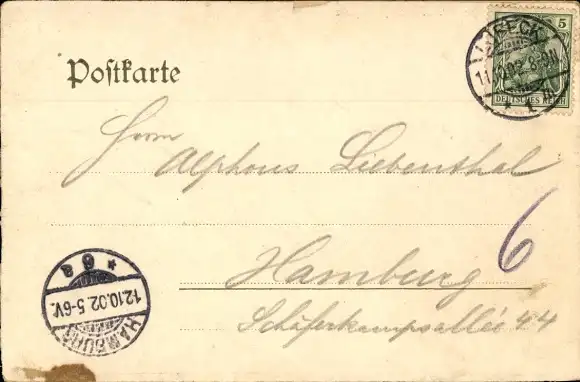 Postkarte
LÜBECK
5
DEUTSCHES REICH
Herrn
Alphons Liebenthal
6
Hamburg
Schäferkampsallée 44
* 9 a
12.10.02. 5-6V.
HAMBURG